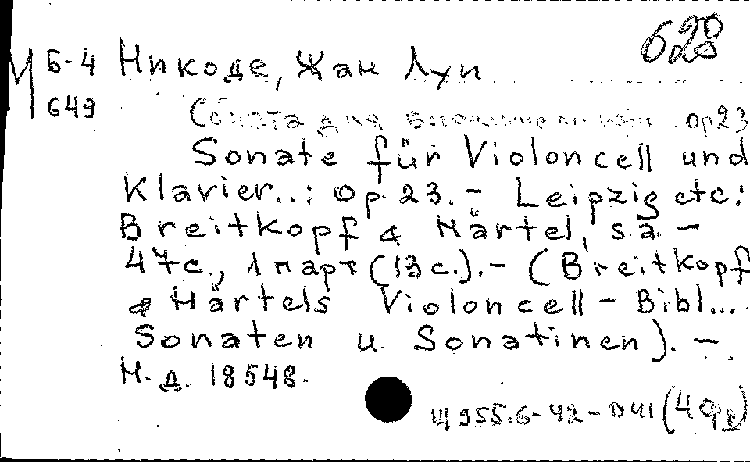 628
М Б-4 Никоде, Жан Луи
649
Соната для виолончели op 23
Sonate für Violoncell und
Klavier..: Op. 23. - Leipzig etc:
Breitkopf & Härtel, s.a. -
47c., 1 парт (13 c.). - (Breitkopf
& Härtels Violoncell - Bibl...
Sonaten u. Sonatinen). -
Н. д. 18548.
Щ955.6-42-